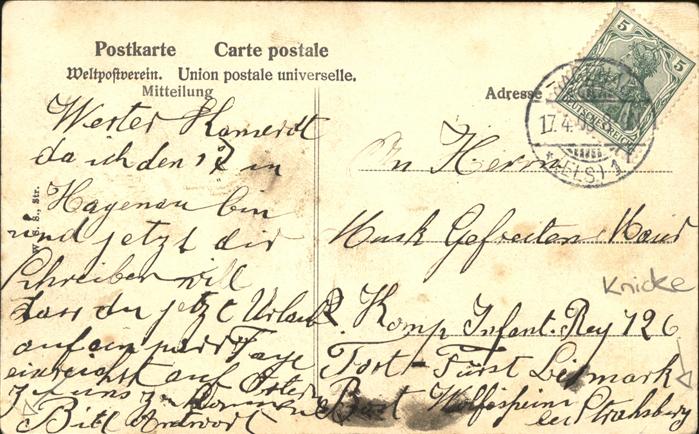 Postkarte Carte postale
Weltpostverein. Union postale universelle.
Mitteilung
Adresse
5 5
DEUTSCHES REICH
17.4.
(ELS) 1
S., Str.
Werter Kamerdt
da ich den 17 in
Hagenau bin
und jetzt dir
Schreiben will
dass du jetzt Urlaub
auf ein paar Tage
einreichst auf Ostern
zu uns zu kommen
Bitt Antwort
An Herrn
Musk Gefreiten
2. Komp Infant. Reg 126
Fort Fürst Bismark
Post Wolfisheim
bei Strahsburg
Knicke